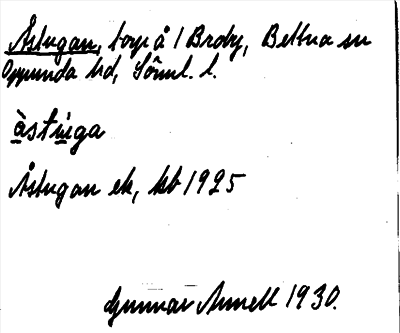 Åstugan, torp å 1 Broby, Bettna sn
Oppunda hd, Söml. l.
àstùga
Åstugan ek, kb 1925
Gunnar Annell 1930.